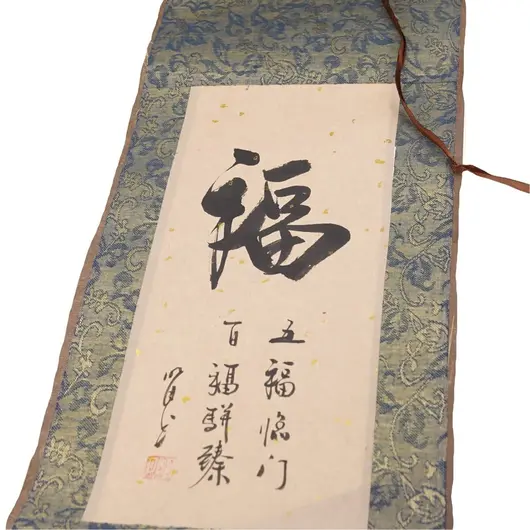 福
五福临门
百福骈臻